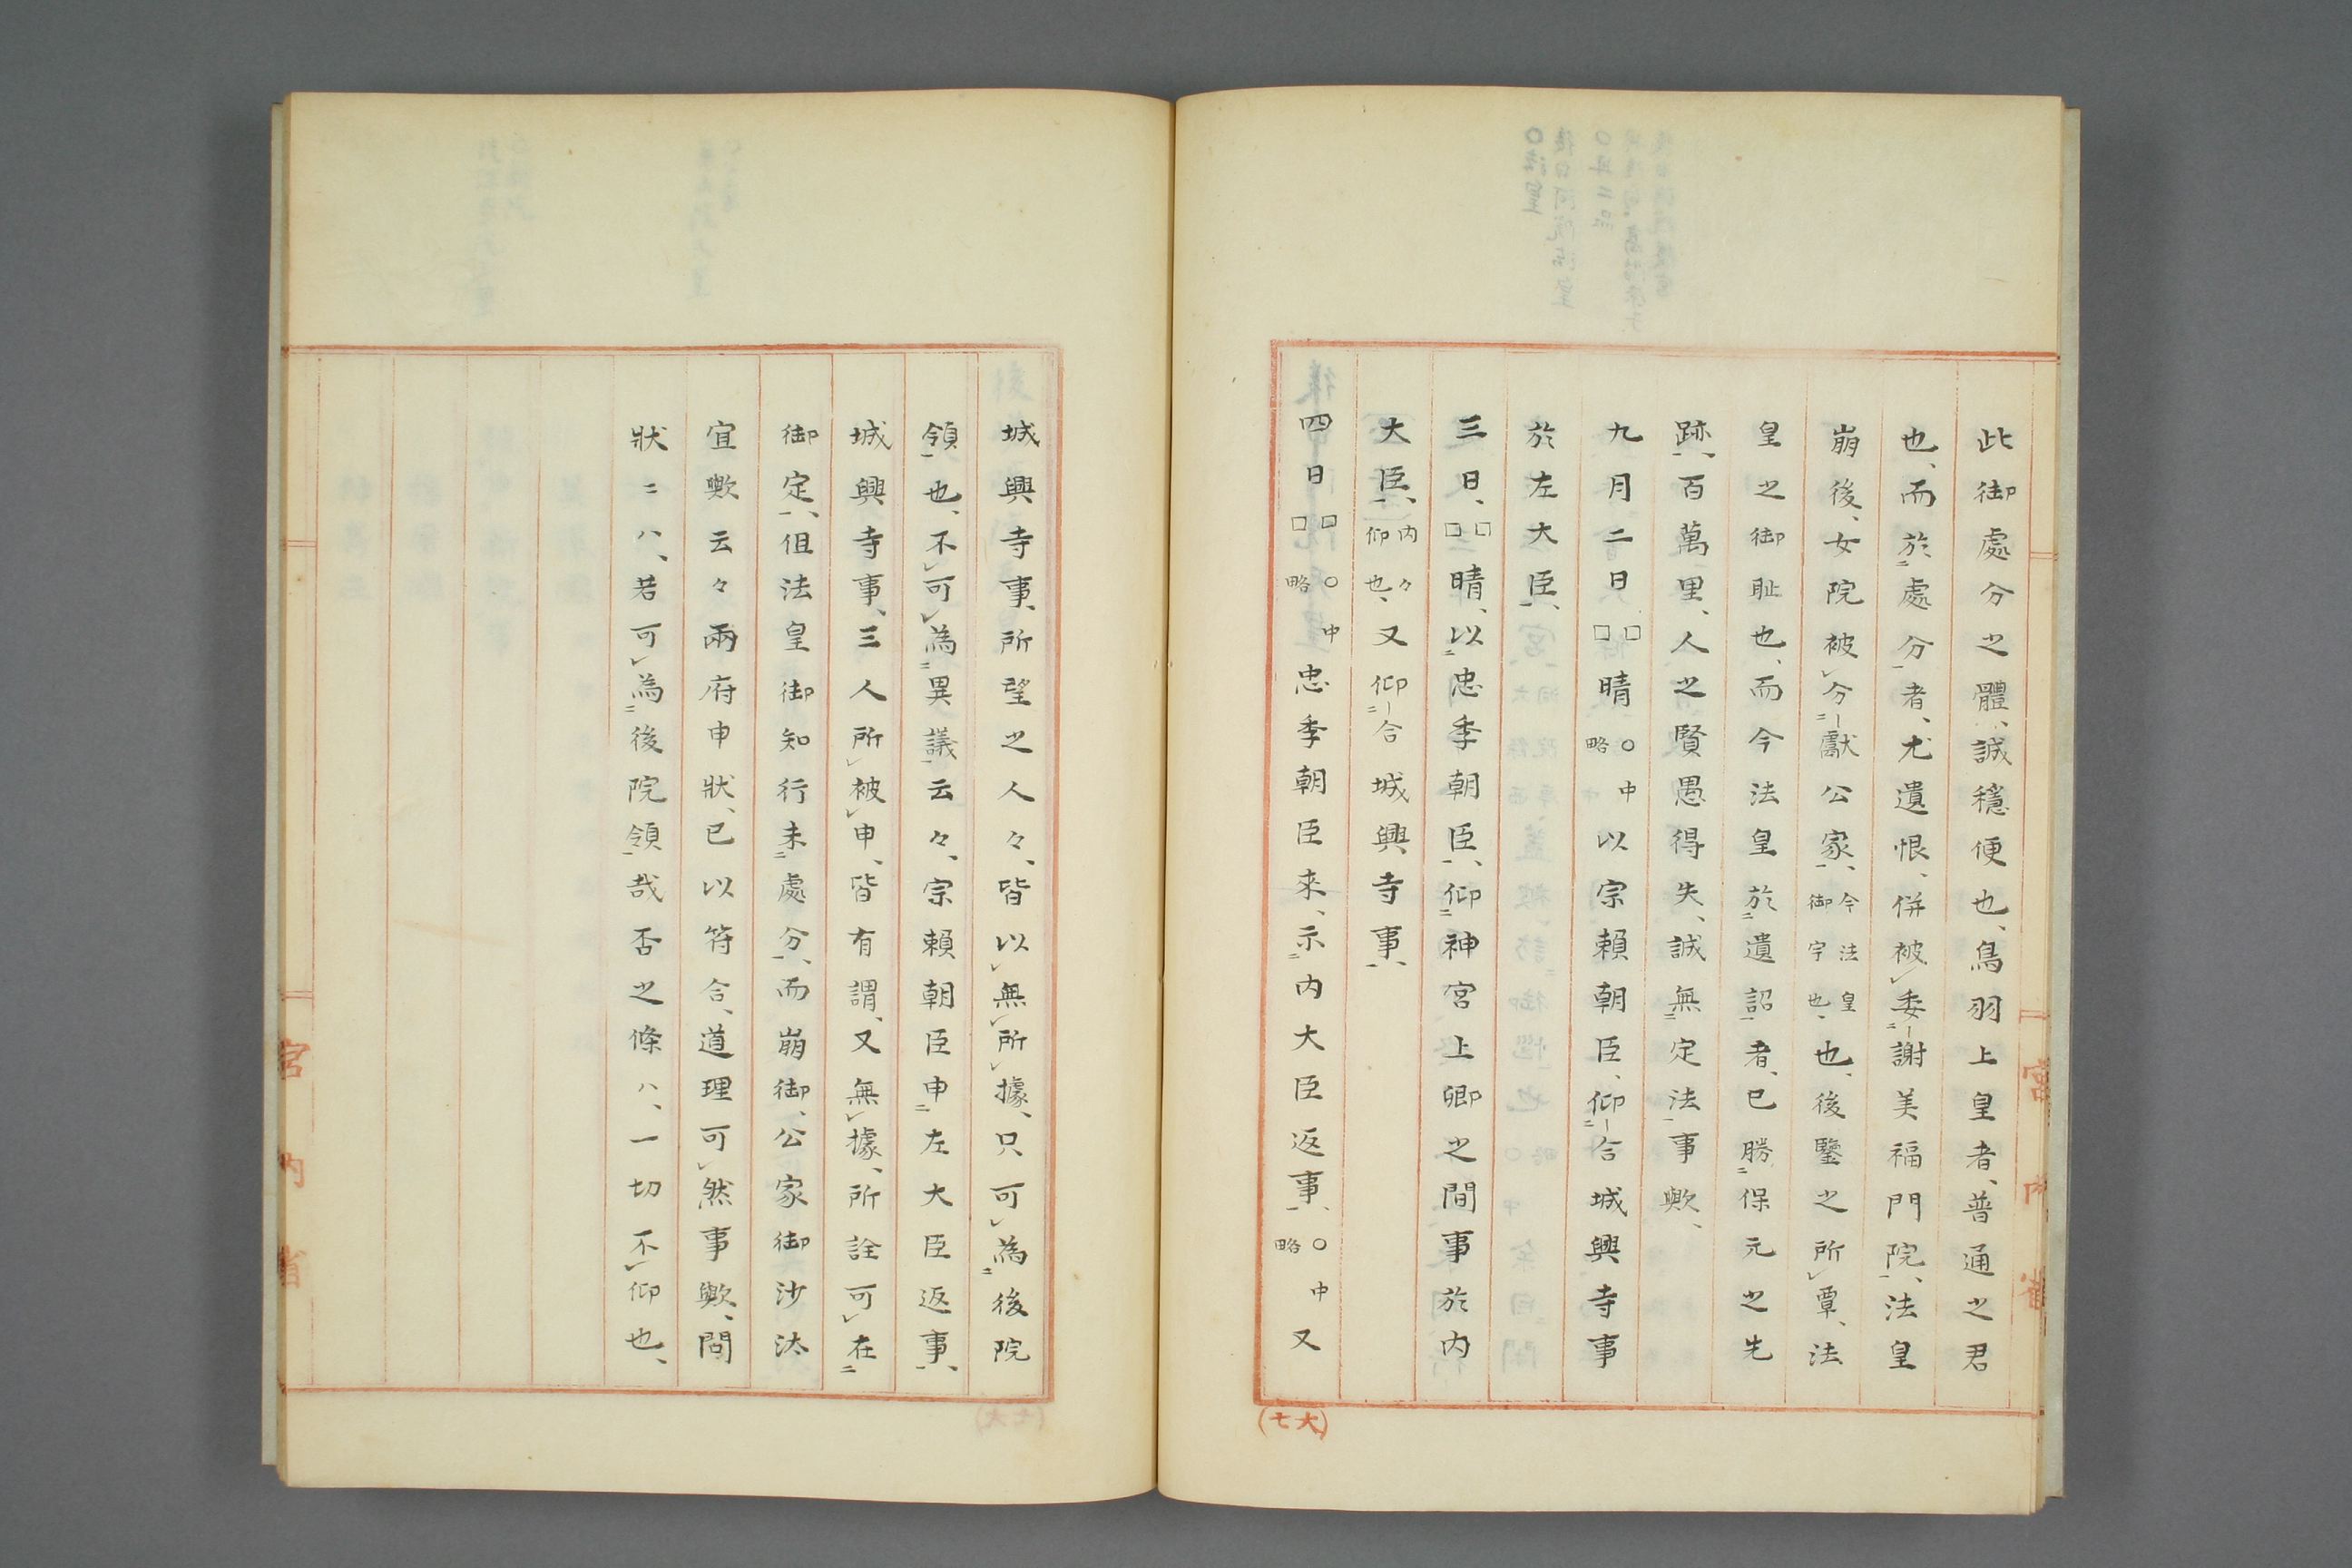 此御處分之體、誠穩便也、鳥羽上皇者、普通之君
也、而於處分者、尤遺恨、併被委謝美福門院、法皇
崩後、女院被分獻公家、今法皇御字也、也、後鑒之所覃、法
皇之御耻也、而今法皇於遺詔者、已勝保元之先
跡、百萬里、人之賢愚得失、誠無定法事歟、
九月二日□□晴○中略以宗賴朝臣、仰合城興寺事
於左大臣、
三日、□□晴、以忠季朝臣、仰神宮上卿之間事於内
大臣、内々仰也、又仰合城興寺事、
四日□□○中略忠季朝臣来、示内大臣返事、○中略又
(七六)
宮内省
城興寺事、所望之人々、皆以無所據、只可為後院
領也、不可為異議云々、宗賴朝臣申左大臣返事、
城興寺事、三人所被申、皆有謂、又無據、所詮可在
御定、但法皇御知行未處分、而崩御、公家御沙汰
宜歟云々、兩府申狀、已以符合、道理可然事歟、問
狀ニハ、若可為後院領哉否之條ハ、一切不仰也、
宮内省